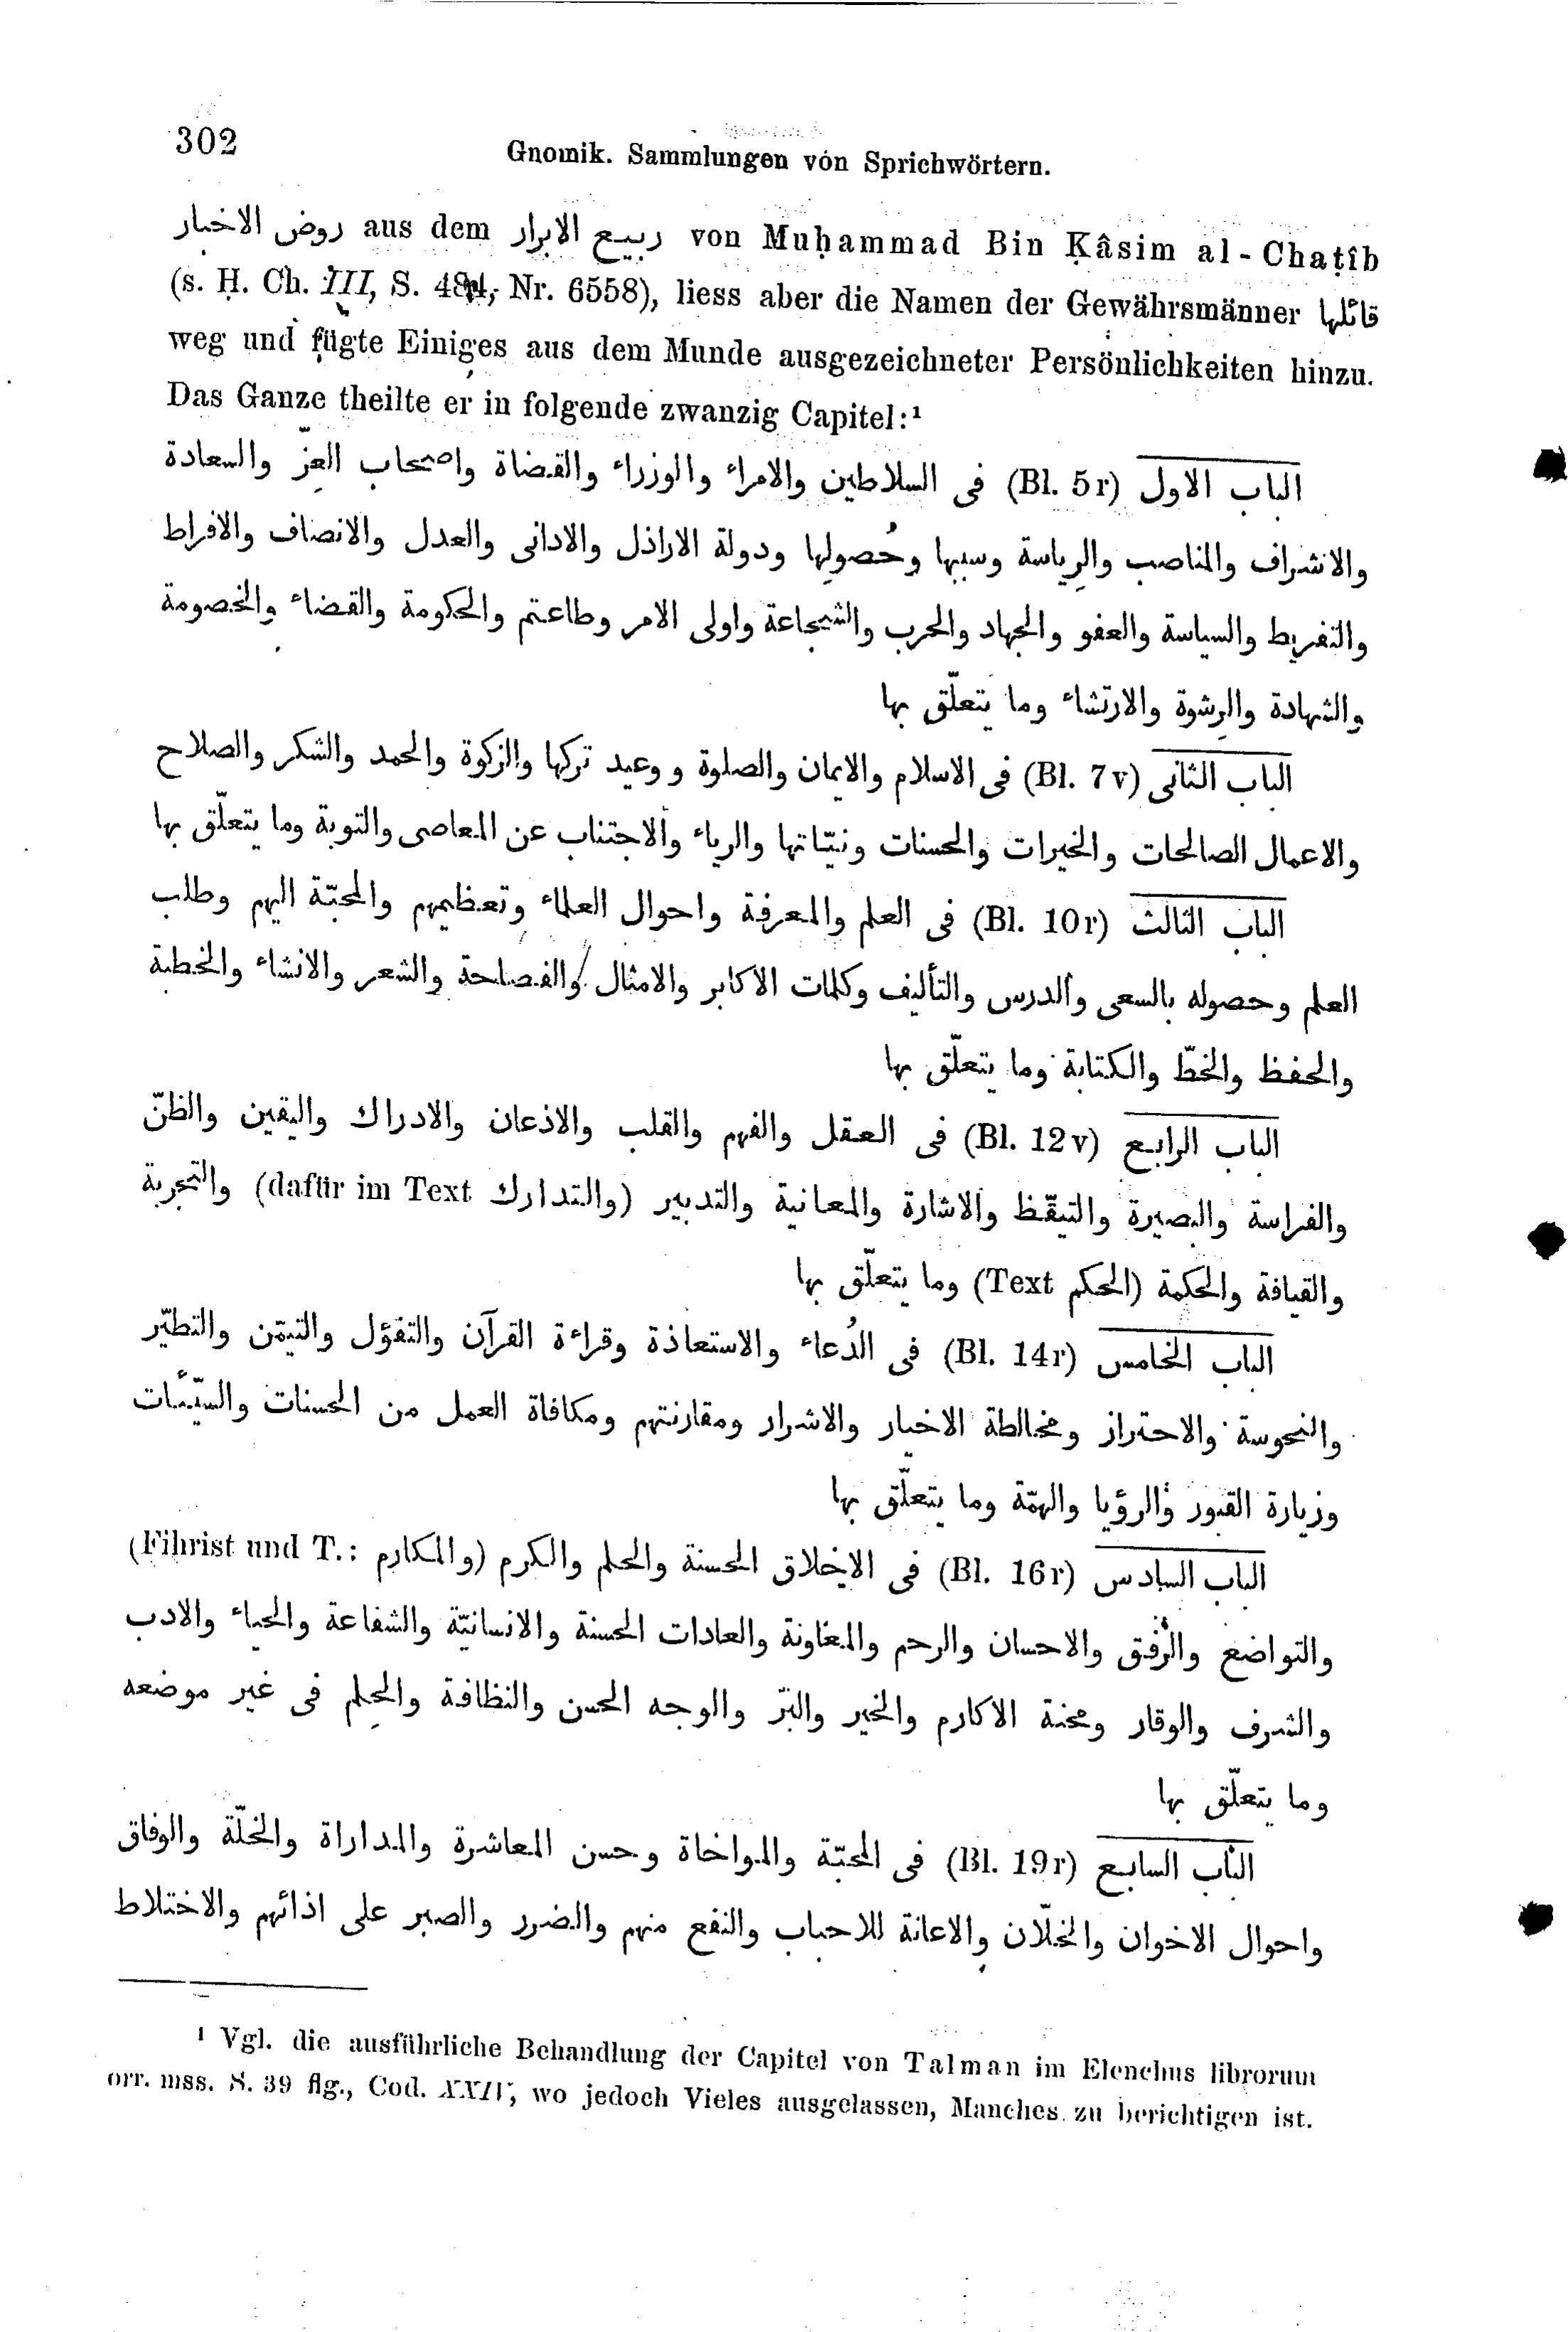 302
Gnomik. Sammlungen von Sprichwörtern.
روض الاخبار aus dem ربيع الابرار von Muḥammad Bin Ḳâsim al-Chaṭîb
(s. Ḥ. Ch. III, S. Nr. 6558), liess aber die Namen der Gewährsmänner قائلها
weg und fügte Einiges aus dem Munde ausgezeichneter Persönlichkeiten hinzu.
Das Ganze theilte er in folgende zwanzig Capitel:¹
الباب الاول (Bl. 5r) فى السلاطين والامراء والوزراء والقضاة واصحاب العزّ والسعادة
والاشراف والمناصب والرِياسة وسببها وحُصولها ودولة الاراذل والادانى والعدل والانصاف والافراط
والتفريط والسياسة والعفو والجهاد والحرب والشجاعة واولى الامر وطاعتهم والحكومة والقضاء والخصومة
والشهادة والرِشوة والارتشاء وما يتعلّق بها
الباب الثانى (Bl. 7v) فى الاسلام والايمان والصلوة ووعيد تركها والزكوة والحمد والشكر والصلاح
والاعمال الصالحات والخيرات والحسنات ونيّاتها والرياء والاجتناب عن المعاصى والتوبة وما يتعلّق بها
الباب الثالث (Bl. 10r) فى العلم والمعرفة واحوال العلماء وتعظيمهم والمحبّة اليهم وطلب
العلم وحصوله بالسعى والدرس والتأليف وكلمات الاكابر والامثال والفصاحة والشعر والانشاء والخطبة
والحفظ والخطّ والكتابة وما يتعلّق بها
الباب الرابع (Bl. 12v) فى العقل والفهم والقلب والاذعان والادراك واليقين والظنّ
والفراسة والبصيرة والتيقّظ والاشارة والمعانية والتدبير (والتدارك dafür im Text) والتجربة
والقيافة والحكمة (الحكم Text) وما يتعلّق بها
الباب الخامس (Bl. 14r) فى الدُعاء والاستعاذة وقراءة القرآن والتفؤل والتيمّن والتطيّر
والنحوسة والاحتراز ومخالطة الاخيار والاشرار ومقارنتهم ومكافاة العمل من الحسنات والسيّئات
وزيارة القبور والرؤيا والهمّة وما يتعلّق بها
الباب السادس (Bl. 16r) فى الاخلاق الحسنة والحلم والكرم (والمكارم :Fihrist und T.)
والتواضع والرفق والاحسان والرحم والمعاونة والعادات الحسنة والانسانيّة والشفاعة والحياء والادب
والشرف والوقار ومحنة الاكارم والخير والبرّ والوجه الحسن والنظافة والحِلم فى غير موضعه
وما يتعلّق بها
الباب السابع (Bl. 19r) فى المحبّة والمواخاة وحسن المعاشرة والمداراة والخلّة والوفاق
واحوال الاخوان والخلّان والاعانة للاحباب والنفع منهم والضرر والصبر على اذائهم والاختلاط
¹ Vgl. die ausführliche Behandlung der Capitel von Talman im Elenchus librorum
orr. mss. S. 39 flg., Cod. XXIV, wo jedoch Vieles ausgelassen, Manches zu berichtigen ist.